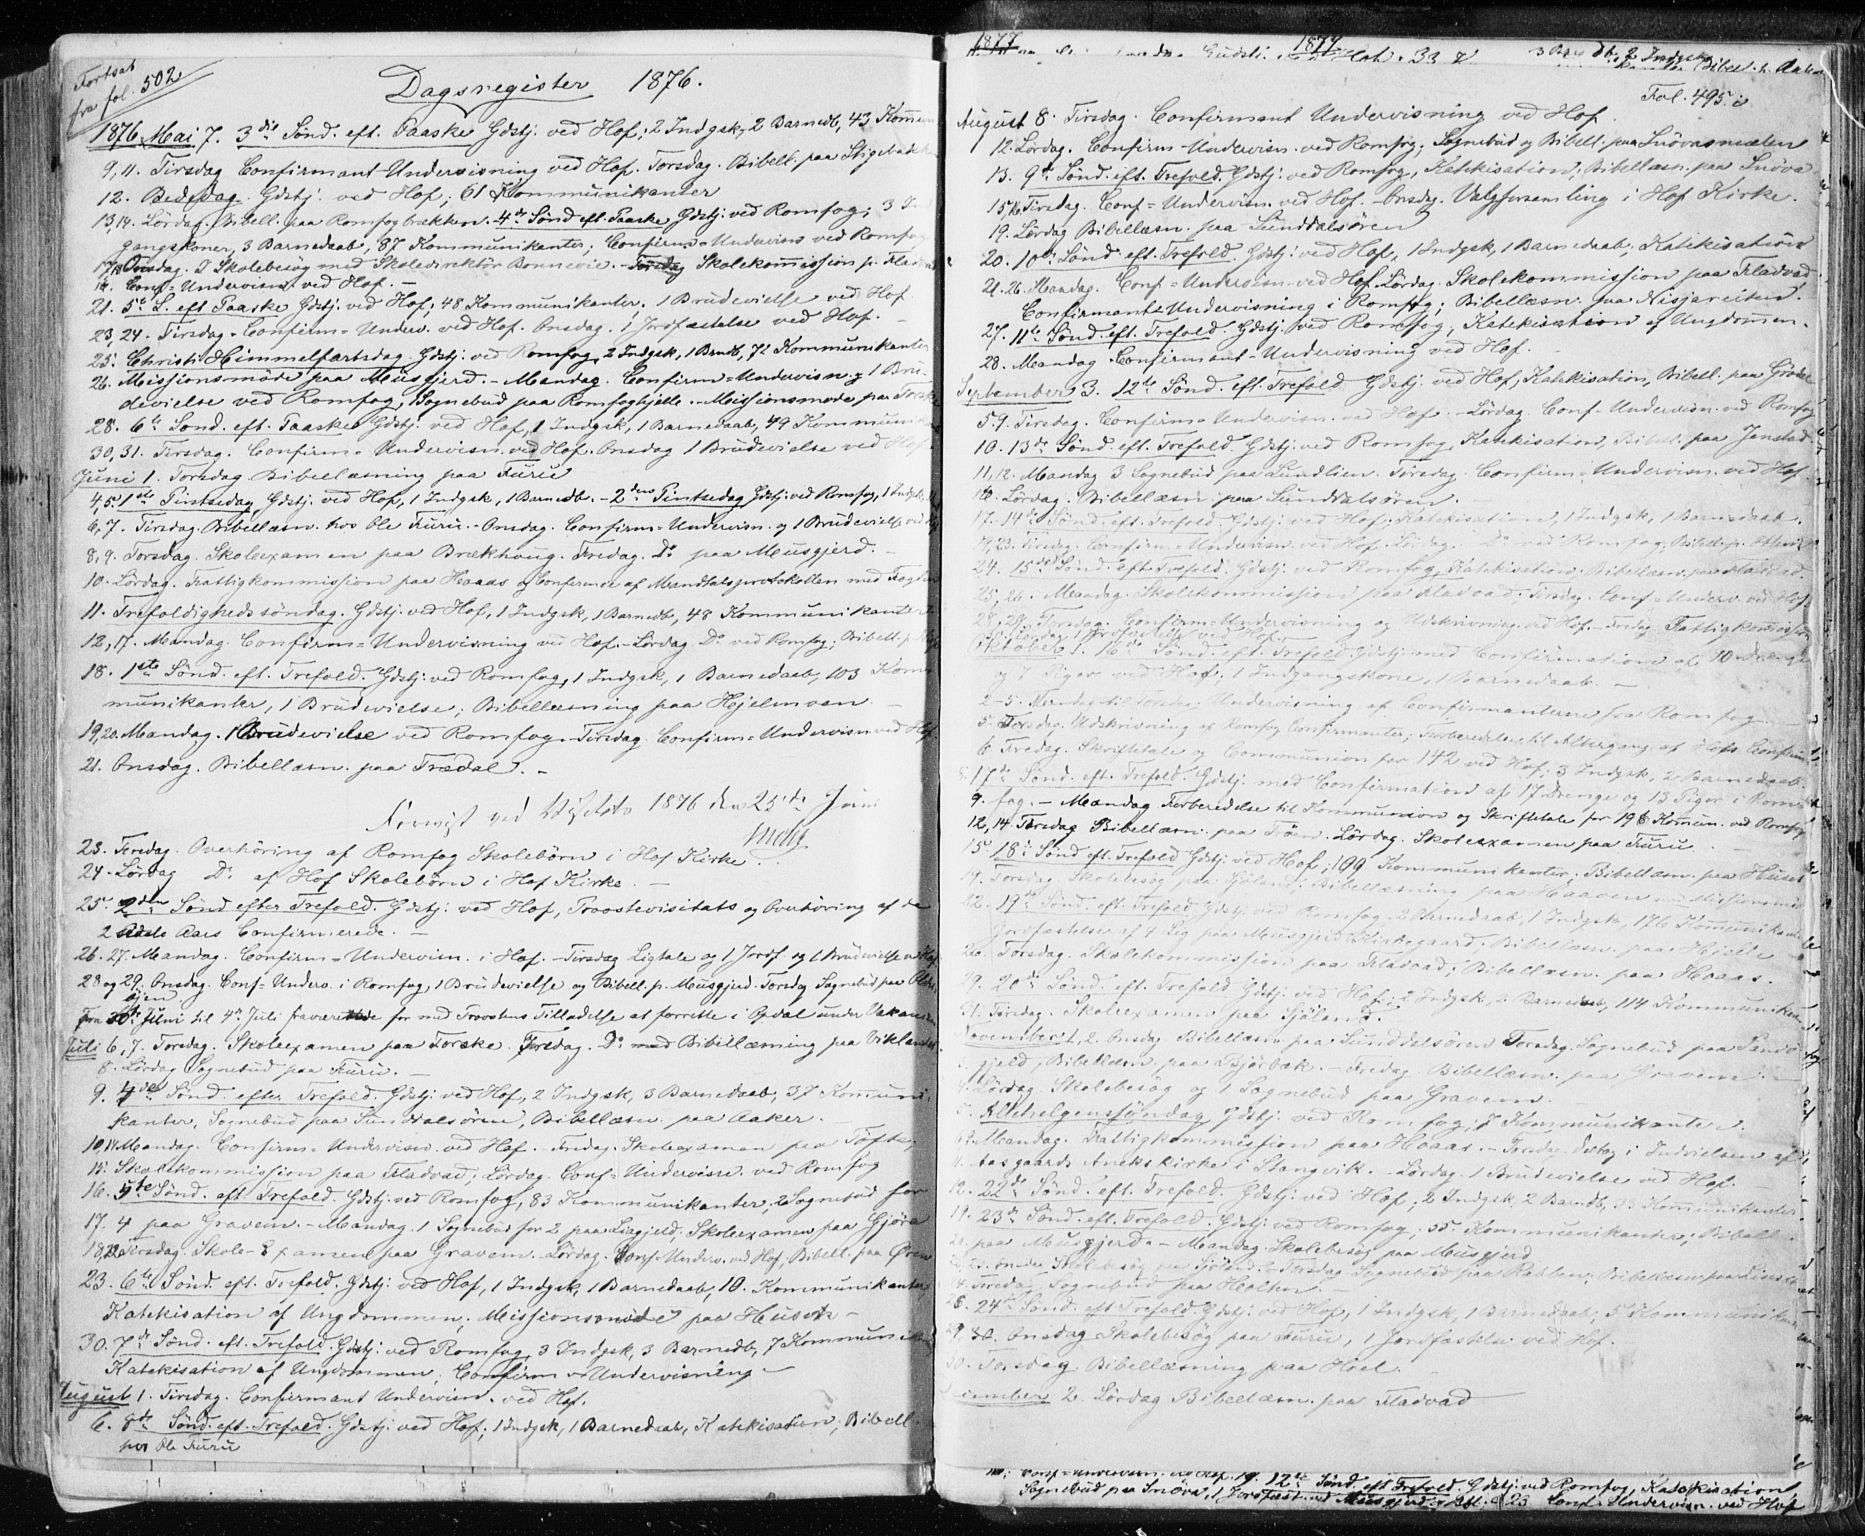 Fortsat
fra fol. 502
Dagsregister 1876.
1876 Mai 7. 3die Sönd. eft. Paaske Gdstj. ved Hof, 2 Indgsk, 2 Barnedb, 43 Kommun
9, 11. Tirsdag Confirmant-Undervisning ved Hof. Torsdag. Bibell. paa
12. Bededag. Gdstj. ved Hof; 61 Kommunikanter
13, 14. Lördag. Bibell. paa Romfogbakken. 4de Sönd eft. Paaske Gdstj. ved Romfog; 3 Ind
gangskoner, 3 Barnedaab, 87 Kommunikanter; Confirm=Undervisn ved Romfog
Skolebesög med Skoledirektör Bonnevie. Skolekommission p. Fladvad
Conf=Undervisn ved Hof.
21. 5te S. eft Paaske Gdstj. ved Hof; 48 Kommunikanter, 1 Brudevielse ved Hof
23, 24. Tirsdag. Confirm=Underv. ved Hof. Onsdag. 1 Jordfæstelse ved Hof.
25. Christi Himmelfartsdag. Gdstj. ved Romfog, 2 Indgsk, 1 Brndb, 71 Kommunikanter
26. Missionsmöde paa Musgjerd. - Mandag. Confirm=Undervisn og 1 Bru-
devielse ved Romfog, Sognebud paa Romfoghjelle. Missionsmöde paa Torske
28. 6te Sönd. eft. Paaske Gdstj. ved Hof, 1 Indgsk, 1 Barnedaab, 49 Kommunik
30, 31. Tirsdag. Confirm=Undervisn. ved Hof. Onsdag 1 Brudevielse ved Hof.
Juni 1. Torsdag Bibellæsning paa Furu
4, 5. 1ste Pintsedag, Gdstj. ved Hof, 1 Indgsk, 1 Barnedb. - 2den Pintsedag Gdstj. ved Romfog, 1 Indgsk
6, 7. Tirsdag. Bibellæsn. hos Ole Furu. - Onsdag. Confirm=Undervisn. og 1 Brudevielse ved Hof
8, 9. Torsdag. Skoleexamen paa Brækhaug. Fredag. Do paa Musgjerd.
10. Lördag. Fattigkommission paa Hoaas og Conference af Mandtalsprotokollen med Fogden
11. Trefoldighedssöndag. Gdstj. ved Hof, 1 Indgsk, 1 Barnedb, 48 Kommunikanter
12, 17. Mandag. Confirm=Undervisning ved Hof. - Lördag. Do ved Romfog; Bibell. p.
18. 1ste Sönd. eft. Trefold. Gdstj. ved Romfog, 1 Indgsk, 1 Barnedaab, 103 Kom
munikanter, 1 Brudevielse; Bibellæsning paa Hjelmven
19, 20. Mandag. 1 Brudevielse ved Romfog. Tirsdag. Confirm=Undervisn ved Hof.
21. Onsdag. Bibellæsn. paa Trædal. -
ved Visitats 1876 den 25de Juni
23. Fredag. Overhöring af Romfog Skolebörn i Hof Kirke.
24. Lördag Do af Hof Skolebörn i Hof Kirke.
25. 2den Sönd efter Trefold. Gdstj. ved Hof, Proostevisitats og Overhöring af de
2 Aars Confirmerede.
26. 27. Mandag. Confirm=Undervisn. i Hof. - Tirsdag Ligtale og 1 Jordf. og 1 Brudevielse ved Hof.
28 og 29. Onsdag. Conf=Underv. i Romfog, 1 Brudevielse og Bibell. p. Musgjerd. Torsdag Sognebud paa
Fra 30te Juni til 4de Juli fraværende for med Proostens Tilladelse at forrette i Opdal under Vakancen
Juli 6, 7. Torsdag. Skoleexamen paa Torske. Fredag. Do med Bibellæsning paa Viklandet
8. Lördag Sognebud paa Furu.
9. 4de Sönd. efter Trefold. Gdstj. ved Hof, 2 Indgsk, 3 Barnedaab, 37 Kommuni
kanter, Sognebud paa Sunddalsören, Bibellæsn. paa Aaker
10, 14. Mandag. Confirm=Undervisn. ved Hof. - Fredag. Skoleexamen paa Tofte,
Skolekommission paa Fladvad; Lördag. Conf=Undervisn. ved Romfog
16. 5te Sönd. eft. Trefold. Gdstj. ved Romfog, 83 Kommunikanter, 2 Sognebud for
17. 4 paa Gravem. - Mandag. 1 Sognebud for 2 paa Liagjeld. Skoleexamen paa Gjöra
18, 22. Tirsdag. Skole-Examen paa Gravem. Lördag. Conf=Underv. ved Hof, Bibell. paa Øren
23. 6te Sönd. eft. Trefold. Gdstj. ved Hof, 1 Indgsk, 1 Barnedaab, 10. Kommunikanter
Katekisation af Ungdommen. Missionsmöde paa Huset
30. 7de Sönd. eft. Trefold. Gdstj. ved Romfog, 3 Indgsk, 3 Barnedb, 7 Kommunikan
Katekisation af Ungdommen, Confirm=Undervisning
August 1. Tirsdag. Confirmant Undervisn. ved Hof.
6. 8de Sönd. eft. Trefold. Gdstj. ved Hof; 1 Indgsk, 1 Barnedaab, Katekisation, Bibell.
hos Ole Furu
1877 1877
Fol. 495
August 8. Tirsdag. Confirmant Undervisning ved Hof.
12. Lördag. Confirm-Undervisn. ved Romfog; Sognebud og Bibell. paa Snövasmælen
13. 9de Sönd. eft. Trefold. Gdstj. ved Romfog, Katekisation, Bibellæsn. paa Snöva
15, 16. Tirsdag. Conf=Undervisn. ved Hof. - Onsdag. Valgforsamling i Hof Kirke.
19. Lördag Bibellæsn. paa Sunddalsören
20. 10de Sönd. eft. Trefold. Gdstj. ved Hof, 1 Indgsk, 1 Barnedaab, Katekisation
21. 26. Mandag. Conf=Undervisn. ved Hof. Lördag. Skolekommission paa Fladvad
Confirmant-Undervisning i Romfog; Bibellæsn. paa Nisjareiten.
27. 11te Sönd. eft. Trefold. Gdstj. ved Romfog, Katekisation af Ungdommen.
28. Mandag. Confirmant-Undervisning ved Hof.
September 3. 12te Sönd. eft. Trefold Gdstj. ved Hof, Katekisation, Bibell. paa
5. 9. Tirsdag. Confirm=Undervisn. ved Hof. - Lördag. Conf-Undervisn. ved Romfog
10. 13de Sönd. eft. Trefold. Gdstj. ved Romfog, Katekisation, Bibell. paa Jenstad
11, 12. Mandag 3 Sognebud paa Sundlien. Tirsdag Confirm. Undervisn. ved Hof.
16. Lördag. Bibellæsn. paa Sunddalsören.
17. 14de Sönd. eft. Trefold. Gdstj. ved Hof, Katekisation, 1 Indgsk, 1 Barnedaab.
Tirsdag. Confirm=Undervisn. ved Hof. Lördag. Do ved Romfog; Bibell. p.
24. 15de Sönd. eft. Trefold. Gdstj. ved Romfog, Katekisation. Bibellæsn. paa Fladvad.
25, 26. Mandag. Skolekommission paa Fladvad. Tirsdag. Conf=Underv. ved Hof.
28, 29. Torsdag. Confirm=Undervisning og Udskrivning ved Hof. - Fredag. Fattigkommission
Lördag 1 Jordfæstelse ved Hof.
Oktober 1. 16de Sönd. eft. Trefold Gdstj. med Confirmation af 10 Drenge
og 7 Piger ved Hof; 1 Indgangskone, 1 Barnedaab. -
2-5. Mandag til Torsdag Undervisning af Confirmanterne fra Romfog
5. Torsdag. Udskrivning af Romfog Confirmanter; Forberedelse til Altergang af Hofs Confirm
6. Fredag. Skriftetale og Communion for 142 ved Hof; 3 Indgsk, 2 Barnedaab
8. 17de Sönd. eft. Trefold. Gdstj. med Confirmation af 17 Drenge og 13 Piger i Rom
9. fog. - Mandag Forberedelse til Kommunion og Skriftetale for 196 Kommun. ved Romfog
12, 14 Torsdag Bibellæsn. paa Trøen. Lördag. Skoleexamen paa Furu.
15. 18de Sönd eft. Trefold Gdstj. ved Hof; 109 Kommunikanter; Bibellæsn. paa Huset
19. Torsdag. Skolebesög paa Sjöland; Bibellæsning paa Hoaaen
22. 19de Sönd. eft. Trefold Gdstj. ved Romfog, 2 Barnedaab, 1 Indgsk, 176 Kommunikan
Jordfæstelse af 4 Lig paa Musgjerd Kirkegaard. Bibellæsn. paa Hjelle
26. Torsdag. Skolekommission paa Fladvad; Bibellæsn. paa Hoaas.
29. 20de Sönd. eft. Trefold Gdstj. ved Hof, 2 Indgsk, 2 Barnedaab, 114 Kommunikan
31. Tirsdag. Skoleexamen paa Sjöland.
November 1, 2. Onsdag Bibellæsn. paa Sunddalsören. Torsdag. Sognebud paa
gjeld, Bibellæsn. paa Bjørbæk. - Fredag. Bibellæsn. paa Gravem
4. Lördag Skolebesög og 1 Sognebud paa Gravem.
5. Allehelgenssöndag Gdstj. ved Romfog, 7 Kommunikanter.
Mandag. Fattigkommission paa Hoaas. - Torsdag. Deltog i Indvielsen af
Aasgaards Annekskirke i Stangvik. - Lördag. 1 Brudevielse ved Hof.
12. 22de Sönd. eft. Trefold. Gdstj. ved Hof, 2 Indgsk, 2 Barndb, 33 Kommunikanter
19. 23de Sönd. eft. Trefold. Gdstj. ved Romfog; 55 Kommunikanter. Bibell.
paa Musgjerd. - Mandag. Skolebesög paa Musgjerd
Onsdag Skolebesög paa Sjöland. Torsdag Sognebud paa
Fredag. Sognebud paa Holten.
26. 24de Sönd. eft. Trefold Gdstj. ved Hof, 1 Indgsk, 1 Barnedaab, 5 Kommunikan
29. Onsdag Skolebesög paa Furu, 1 Jordfæstelse ved Hof.
30. Torsdag. Bibellæsning paa Hoel.
cember 2. Lördag Bibellæsn. paa Fladvad
Conf=Undervisn. ved Hof. 19. 12te Sönd. eft Trefold. Gdstj. ved Romfog, Katekisation
Sognebud paa Snöva, 1 Jordfæst. ved Musgjerd. Conf=Undervisn. ved Hof